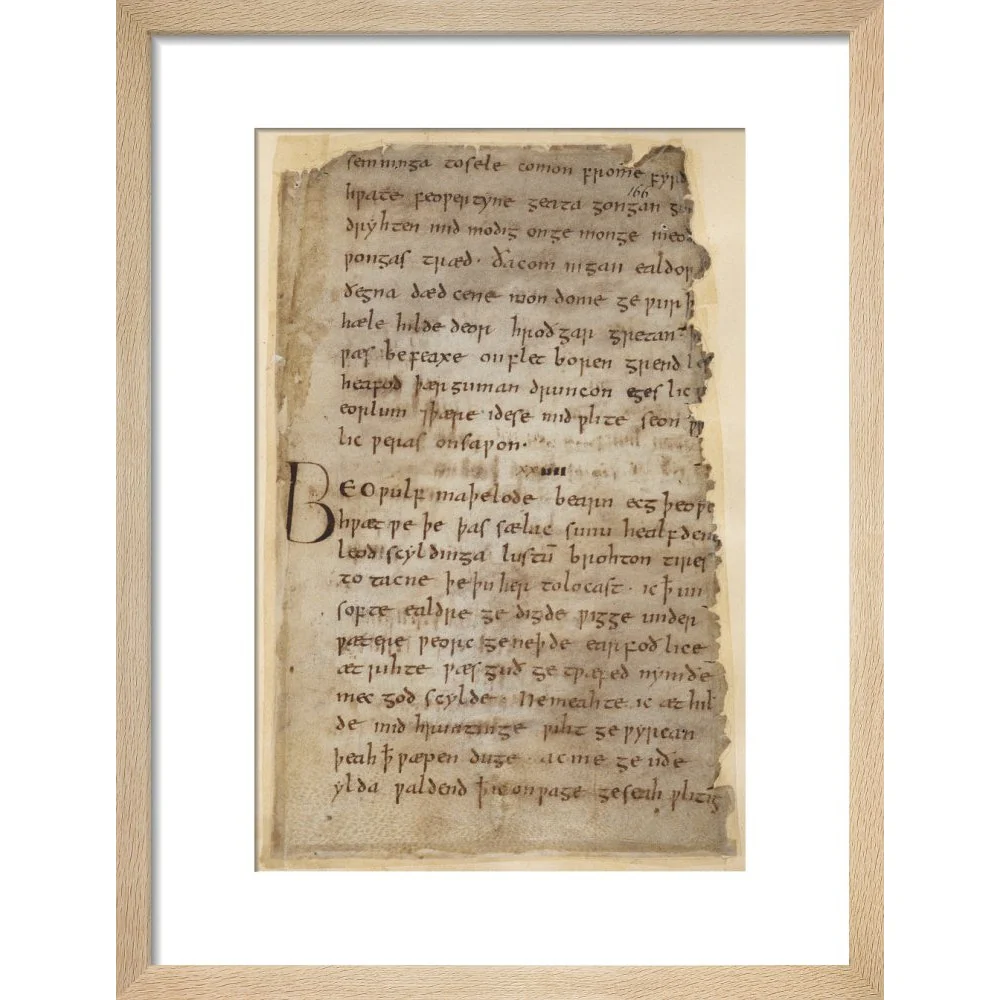 semninga tosele comon frome fyrd
166
hƿate feoƿertyne geata gongan gu
dryhten mid modig onge monge meodo
ƿongas træd· ða com in gan ealdor
ðegna dæd cene mon dome ge ƿurþ
hæle hilde deor hroðgar gretan· þ
ƿæs be feaxe on flet boren grendles
heafod þær guman druncon egeslic
eorlum ⁊ þære idese mid ƿlite seon ƿr
lic ƿeras onsaƿon·
xxiiii
BEOƿulf maþelode bearn ecg þeoƿes
hƿæt ƿe þe þas sælac sunu healfdenes
leod scyldinga lustū brohton tires
to tacne þe þu her tolocast· ic ꝥ un
softe ealdre ge digde ƿigge under
ƿætere ƿeorc ge neþde earfoð lice
æt rihte ƿæs guð ge tƿæfed nymðe
mec god scylde· Ne meahte ic æt hil
de mid hruntinge ƿiht ge ƿyrcan
þeah ꝥ ƿæpen duge· ac me ge uðe
ylda ƿaldend ꝥ ic on ƿage geseah ƿlitig